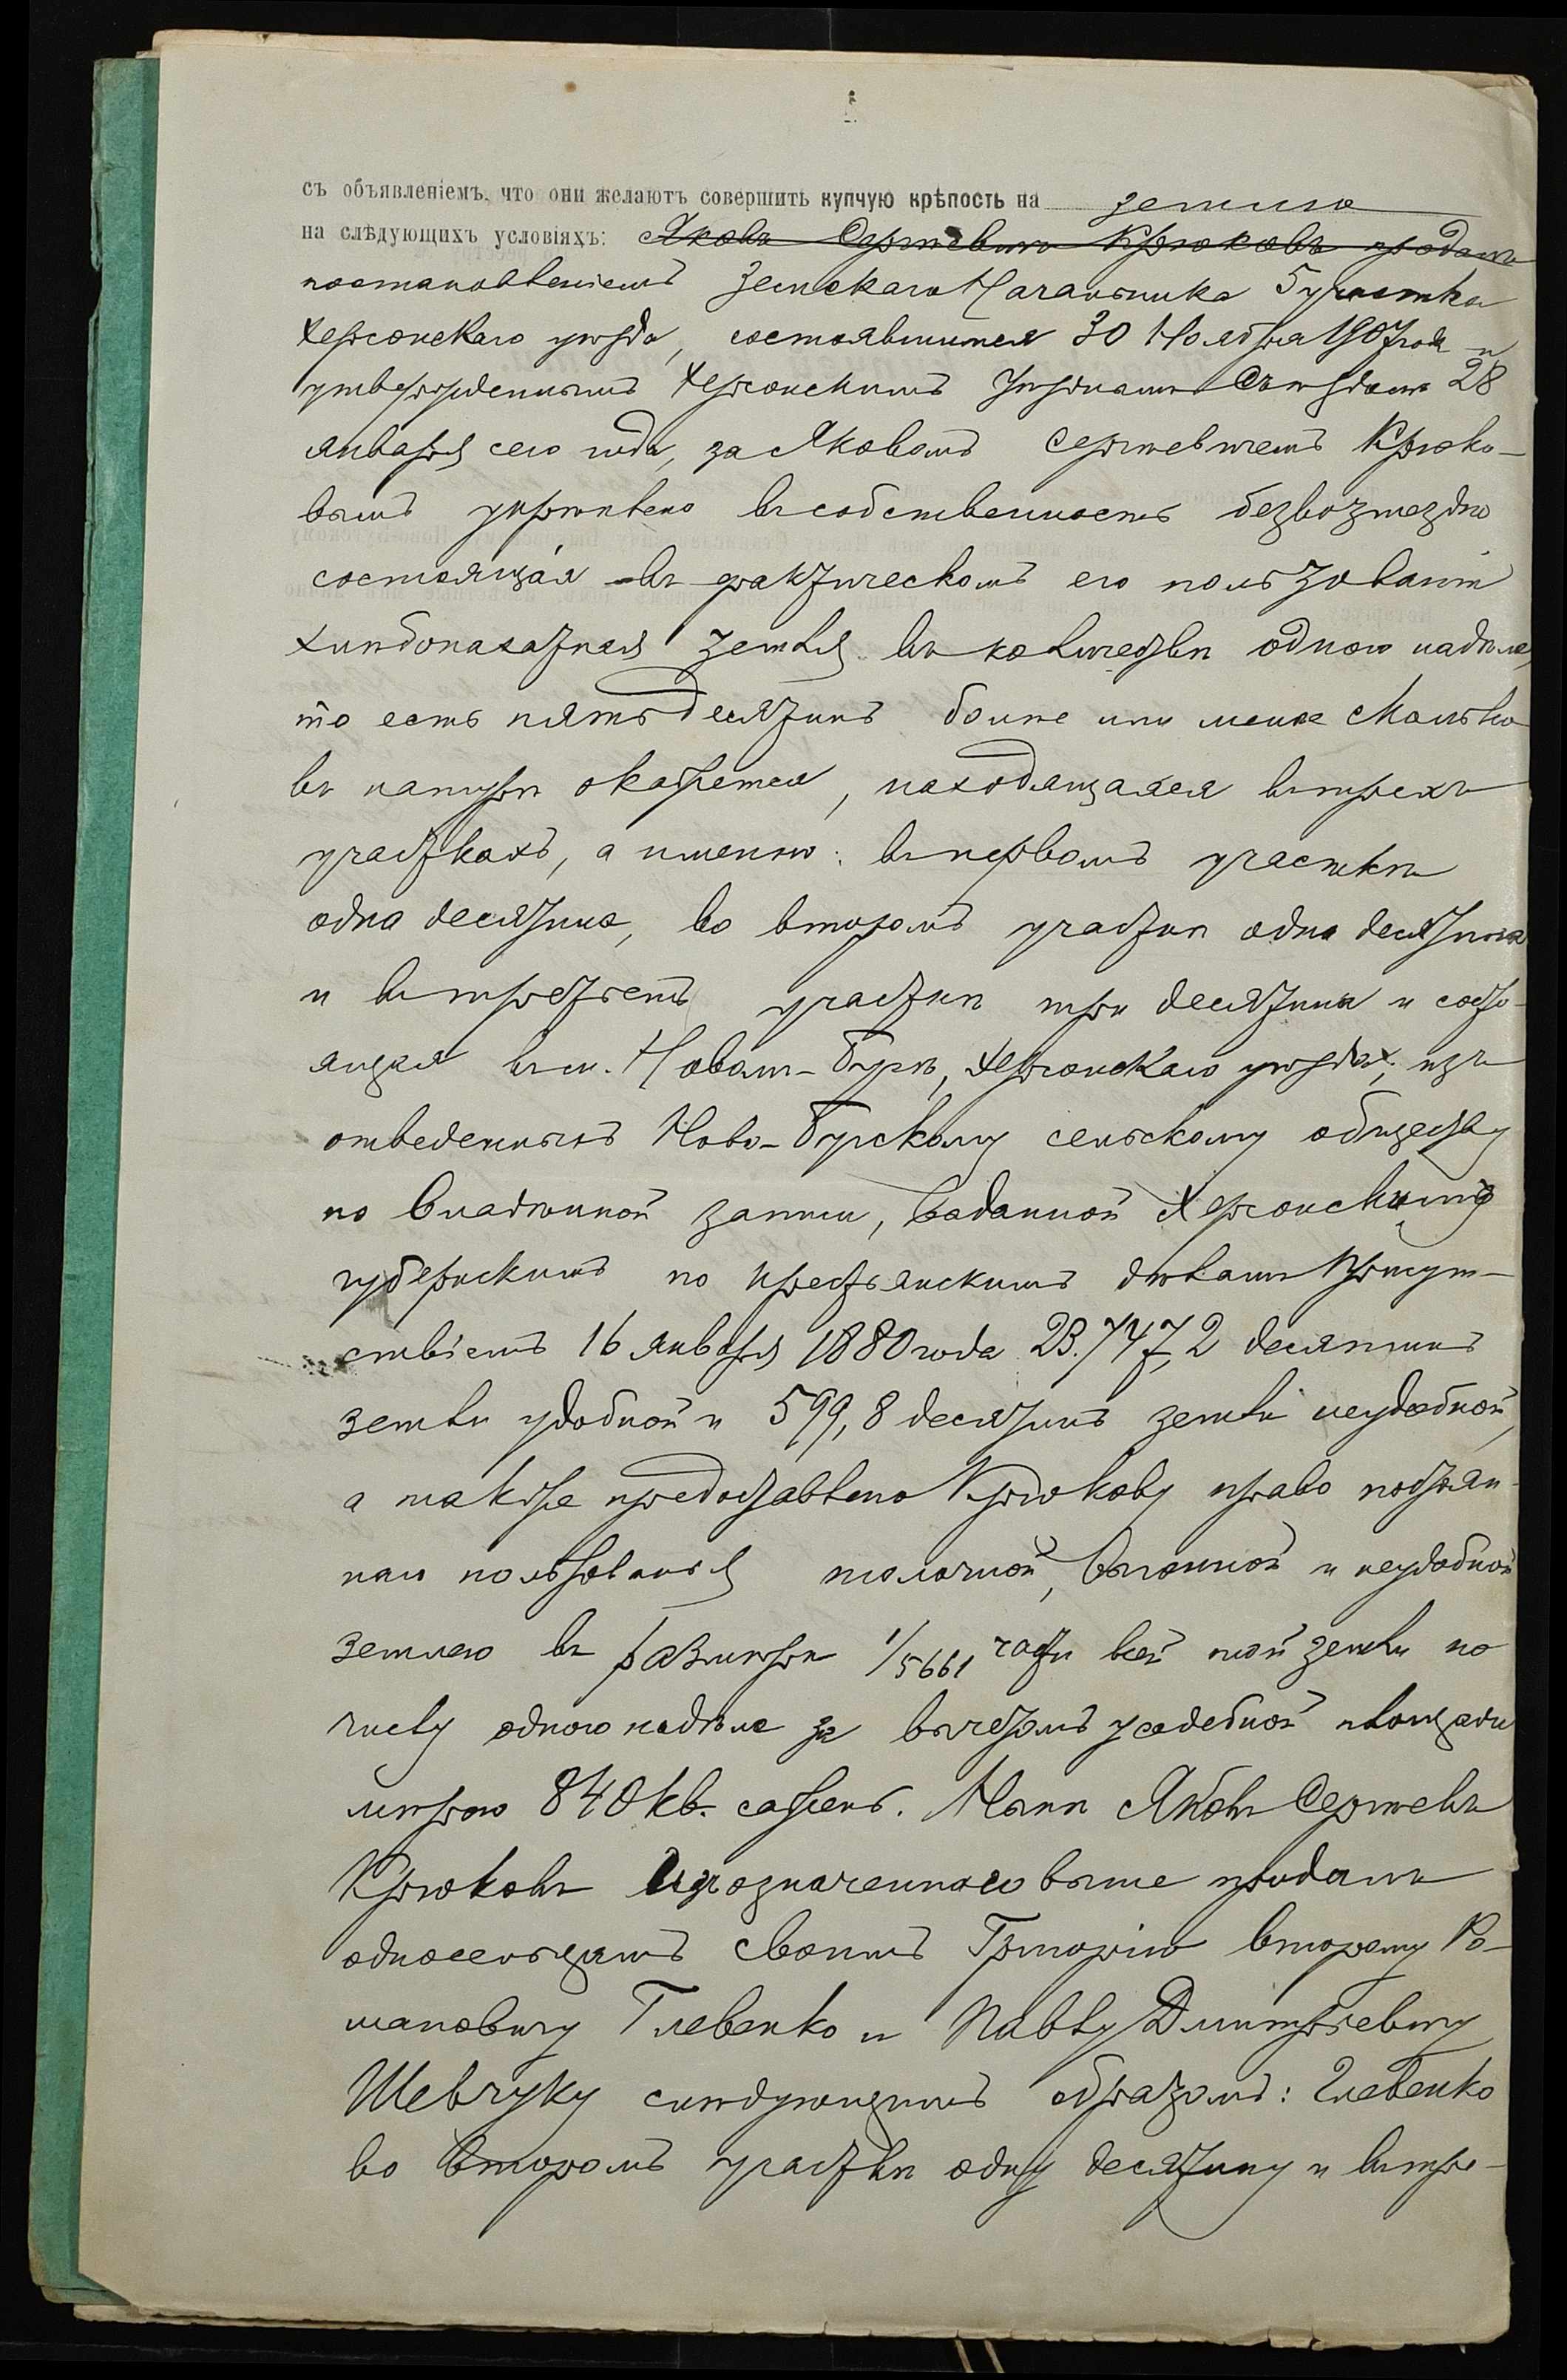 съ объявленіемъ, что они желаютъ совершить купчую крѣпость на землю
на слѣдующихъ условіяхъ: Яковъ Сергѣевичъ Крюковъ продалъ
постановленіемъ Земскаго Начальника 5 участка
Херсонскаго уѣзда, состоявшимся 30 Ноября 1907 года и
утвержденнымъ Херсонскимъ Уѣзднымъ Съѣздомъ 28
января сего года, за Яковомъ Сергѣевичемъ Крюко-
вымъ укрѣплено въ собственность безвозмездно
состоящая въ фактическомъ его пользованіи
хлѣбопахатная земля въ количествѣ одного надѣла,
то есть пять десятинъ болѣе или менѣе сколько
въ натурѣ окажется, находящаяся въ трехъ
участкахъ, а именно: въ первомъ участкѣ
одна десятина, во второмъ участкѣ одна десятина
и въ третьемъ участкѣ три десятины и состо-
ящая въ м. Новомъ-Бугѣ, Херсонскаго уѣзда, изъ
отведенныхъ Ново-Бугскому сельскому обществу
по Владѣнной записи, выданной Херсонскимъ
губернскимъ по крестьянскимъ дѣламъ Присут-
ствіемъ 16 января 1880 года 23.747,2 десятинъ
земли удобной и 599,8 десятинъ земли неудобной,
а также предоставлено Крюкову право постоян-
наго пользованія толочной, выгонной и неудобной
землею въ размѣрѣ 1/5661 части всей той земли по
числу одного надѣла за вычетомъ усадебной площади
мѣрою 840 кв. сажень. Нынѣ Яковъ Сергѣевъ
Крюковъ изъ означеннаго выше продалъ
односельцамъ своимъ Григорію второму Ро-
мановичу Глевенко и Павлу Дмитріевичу
Шевчуку слѣдующимъ образомъ: Глевенко
во второмъ участкѣ одну десятину и въ тре-